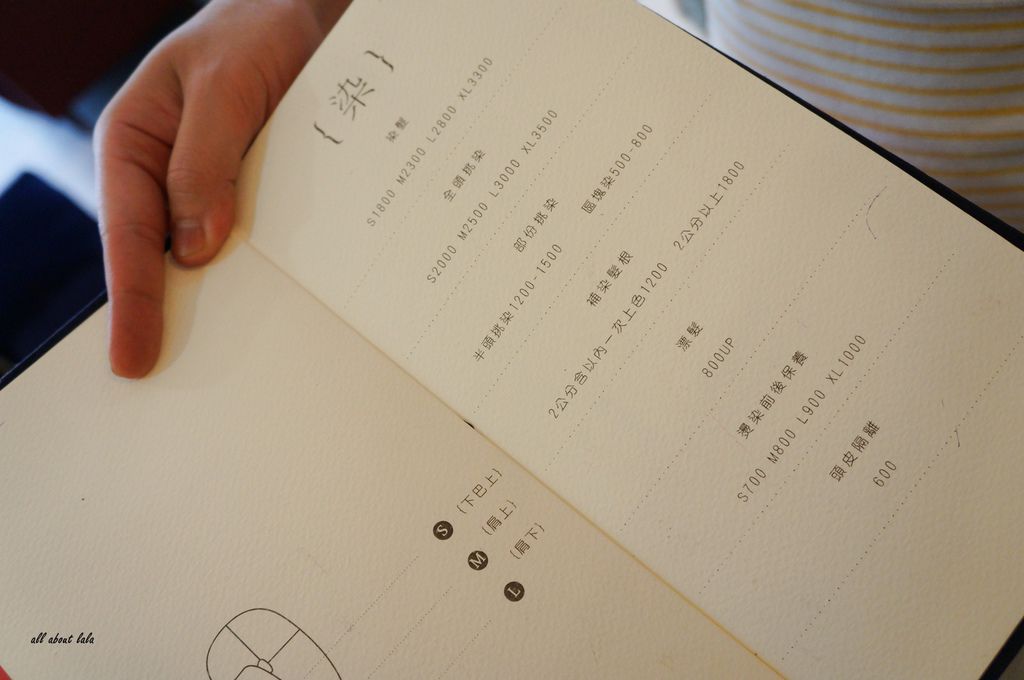 { 染 }
染髮
S1800 M2300 L2800 XL3300
全頭挑染
S2000 M2500 L3000 XL3500
部份挑染
半頭挑染1200-1500 區塊染500-800
補染髮根
2公分含以內一次上色1200 2公分以上1800
漂髮
800UP
燙染前後保養
S700 M800 L900 XL1000
頭皮隔離
600
S (下巴上)
M (肩上)
L (肩下)
all about lala